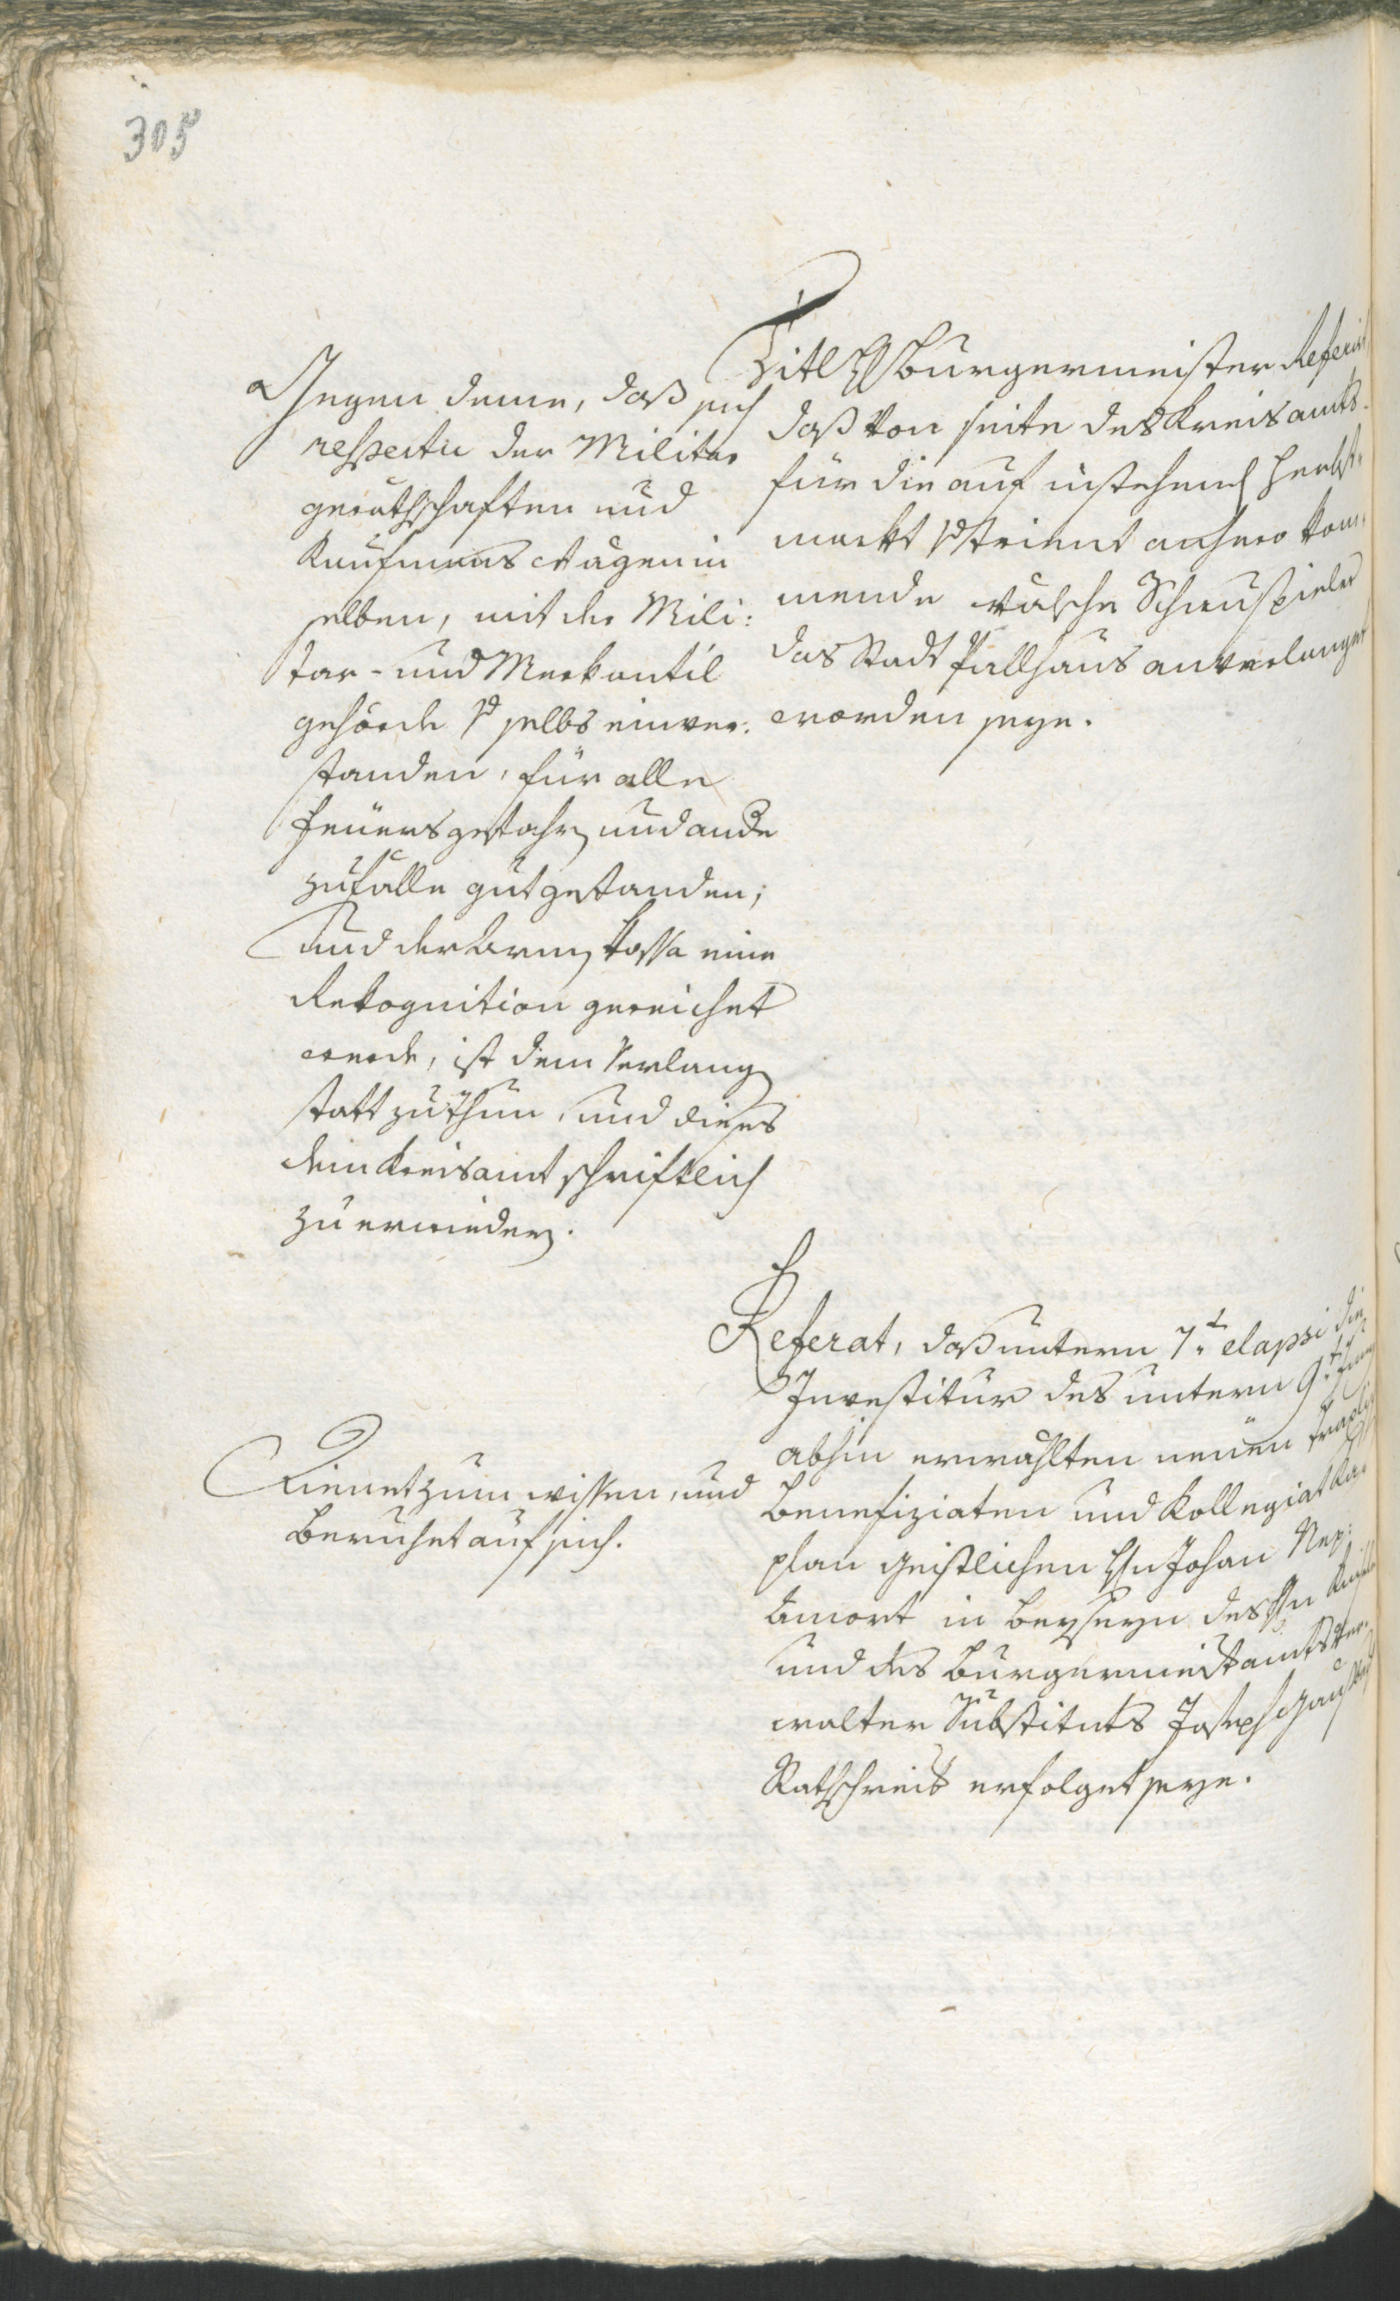 305
Titl H Burgermeister Referirt
daß von seite des Kreisamts
für die auf instehend Herbst-
markt von Trient anhero kom-
mende walsche Schauspieler
das Stadt Pallhaus anverlanget
worden seye.
Gegen deme, daß sich
respectu der Militar
geräthschaften und
Kaufmans Wägen in
selben, mit der Mili:
tar- und Merkantil
gehörde selbs einver:
standen, für alle
Feüersgefahr und andere
zufälle gutgestanden;
und der Armen Cassa eine
Rekognition gereichet
werde, ist dem Verlangen
statt zu thun, und dieses
dem Kreisamt schriftlich
zu erwiedern.
Referat, daß untern 7.t elapsi die
Investitur des untern 9.t
abhin erwählten neüen
Benefiziaten und Kollegiat Ka-
plan Geistlichen Hn Johan Nep:
Amort in Beyseyn des Hn
und des Burgermeisteramts Ver-
walter Substituts Joseph
Rathschreib erfolget seye.
Dienet zum wissen, und
beruhet auf sich.